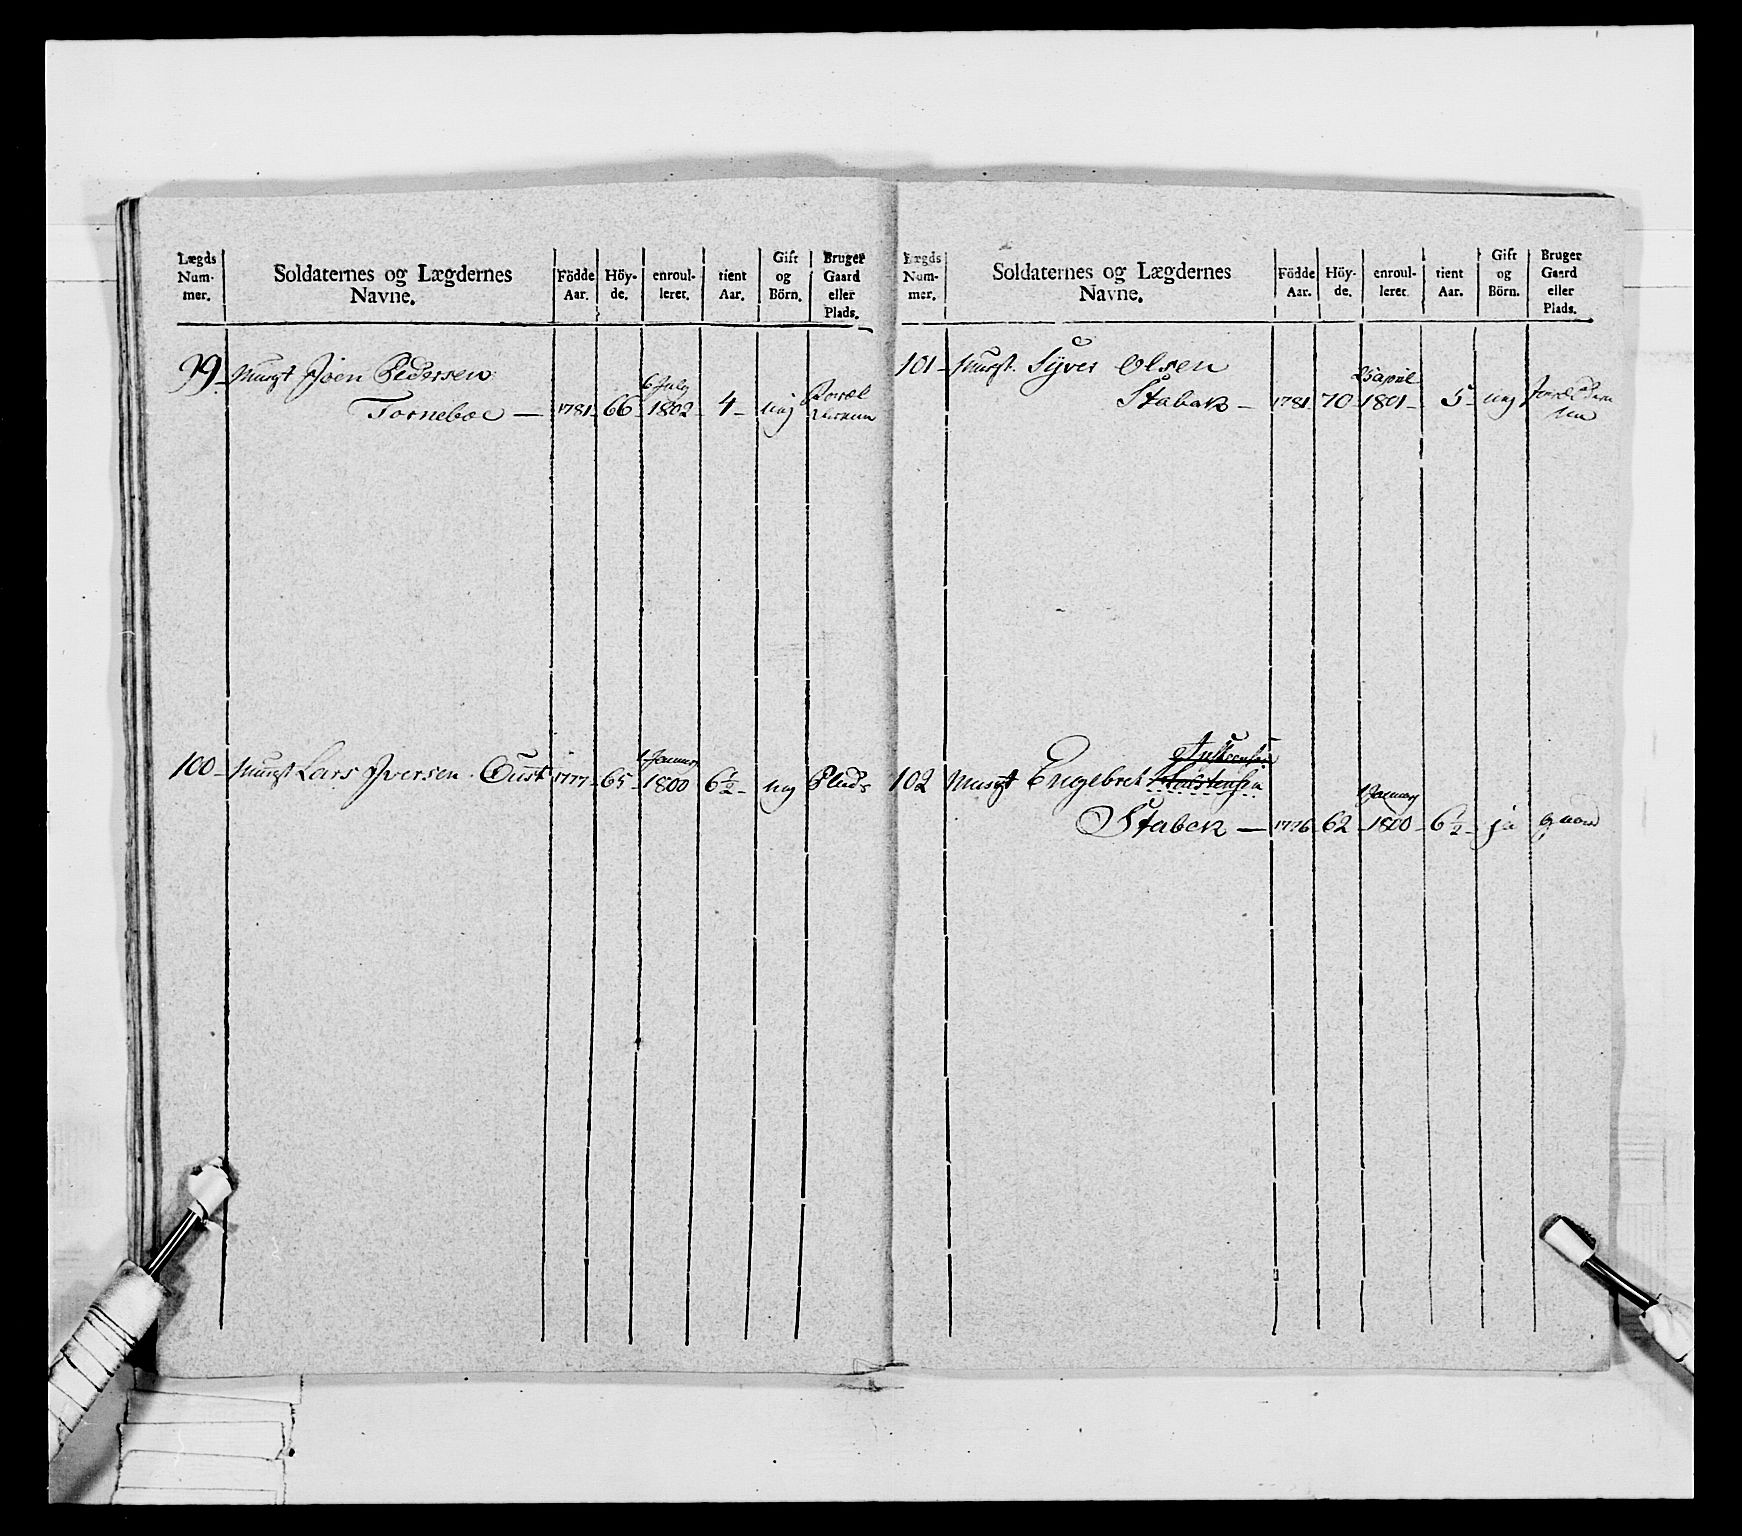 Lægds Num- mer.
Soldaternes og Lægdernes Navne.
Födde Aar.
Höy- de.
enroul- leret.
tient Aar.
Gift og Börn.
Bruger Gaard eller Plads.
99. Musqt Joen Pedersen
6 July
Torneboe — 1781 66 1802 4 — nej
1 Januar
100 — Musqt Lars Iversen 1777 65 1800 6½ nej Plads
Lægds Num- mer.
Soldaternes og Lægdernes Navne.
Födde Aar.
Höy- de.
enroul- leret.
tient Aar.
Gift og Börn.
Bruger Gaard eller Plads.
101 — Musqt. Syver Olsen
25 april
Stabæk — 1781 70 1801 — 5 — nej
102 Musqt Engebret
1 Januar
Stabek — 1776 62 1800 — 6½ — ja gaard